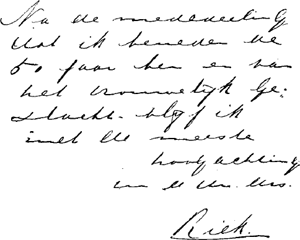 Na de mededeeling
dat ik beneden de
50 jaar ben en van
het vrouwelijk Ge-
slacht blijf ik
met de meeste
hoogachting

Riek.